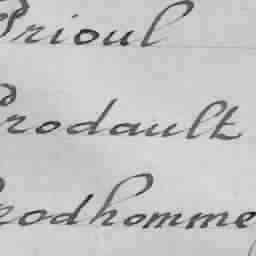 Prioul
Prodault
Prodhomme